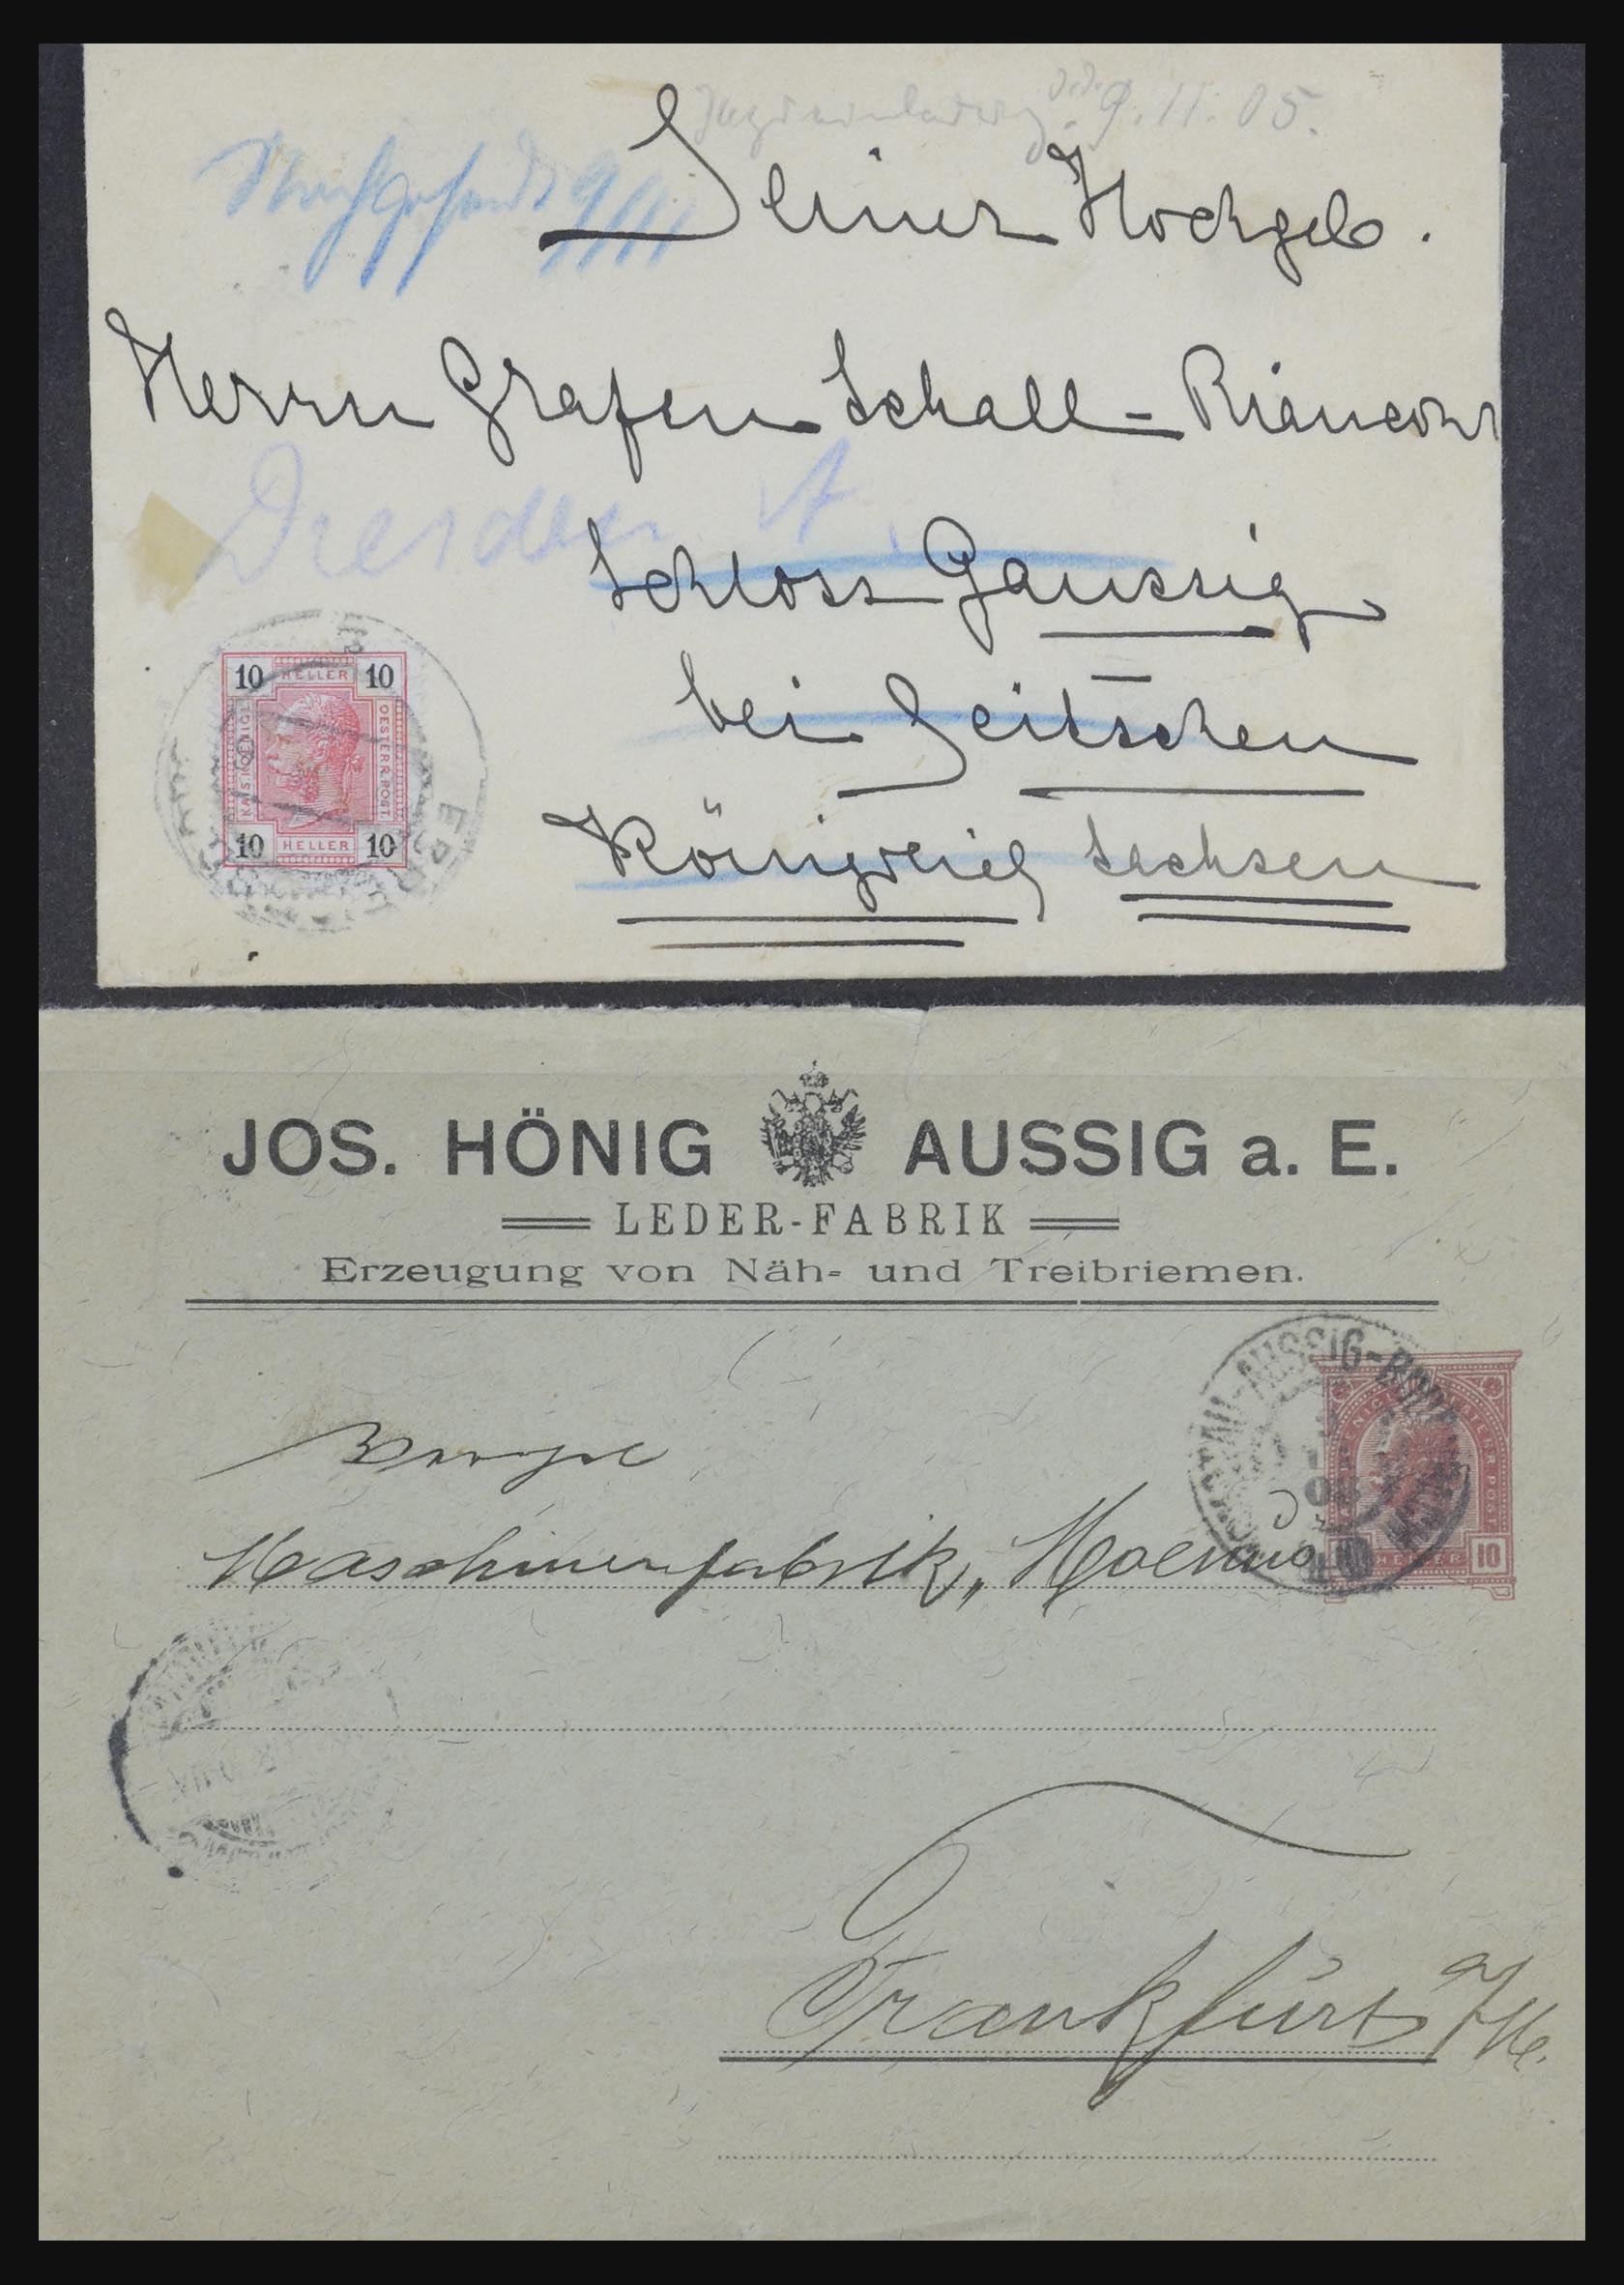 9.11.05.
Nachgesandt 9/11
Seiner Hochgeb.
Herrn Grafen Schall-Riaucour
Dresden A.
Schloss Gaussig
bei Seitschen
Königreich Sachsen
10 HELLER 10
KAIS. KOENIGL. OESTERR. POST
10 HELLER 10
JOS. HÖNIG AUSSIG a. E.
LEDER-FABRIK
Erzeugung von Näh- und Treibriemen.
AUSSIG-BODENBACH
Maschinenfabrik „Moenus
HELLER 10
Frankfurt a/M.